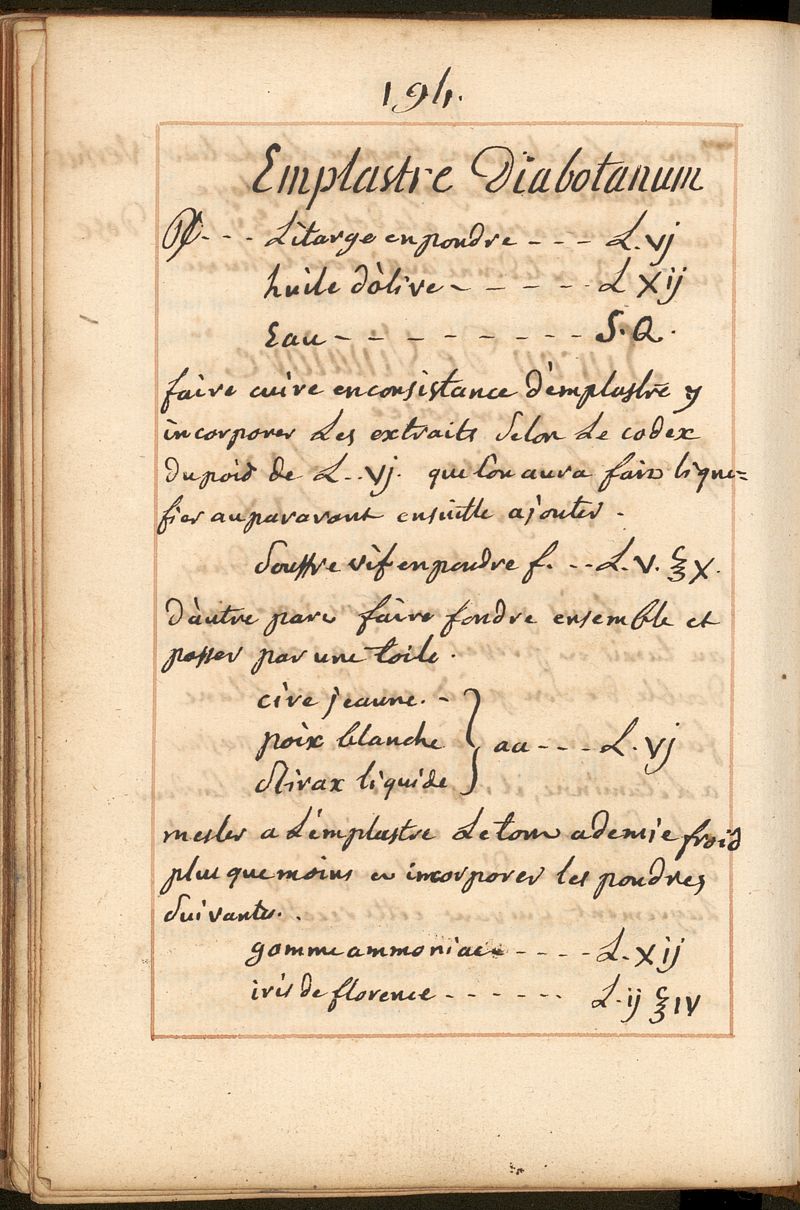 194.
Emplastre Diabotanum
℞ - - - Litarge en poudre - - - L. vj
huile d'olive - - - - - L Xij
Eau - - - - - - - - - S. Q.
faire cuire en consistance d'emplastre y
incorporer Les extraits selon Le codex
du poid de L. vj. que l'on aura fait lique=
fier auparavant ensuitte ajouter.
Souffre vif en poudre f. - - L. v. ℥ X.
d'autre part faire fondre ensemble et
passer par une toile.
cire jeaune. -
poix blanche } aa - - - - L. vj
Stirax liquide
mesler a L'emplastre Le tout a demie froid
plus que moins et incorporer les poudres
Suivantes. .
gomme ammoniac - - - - L. Xij
iris de florence - - - - - - L. ij ℥ IV